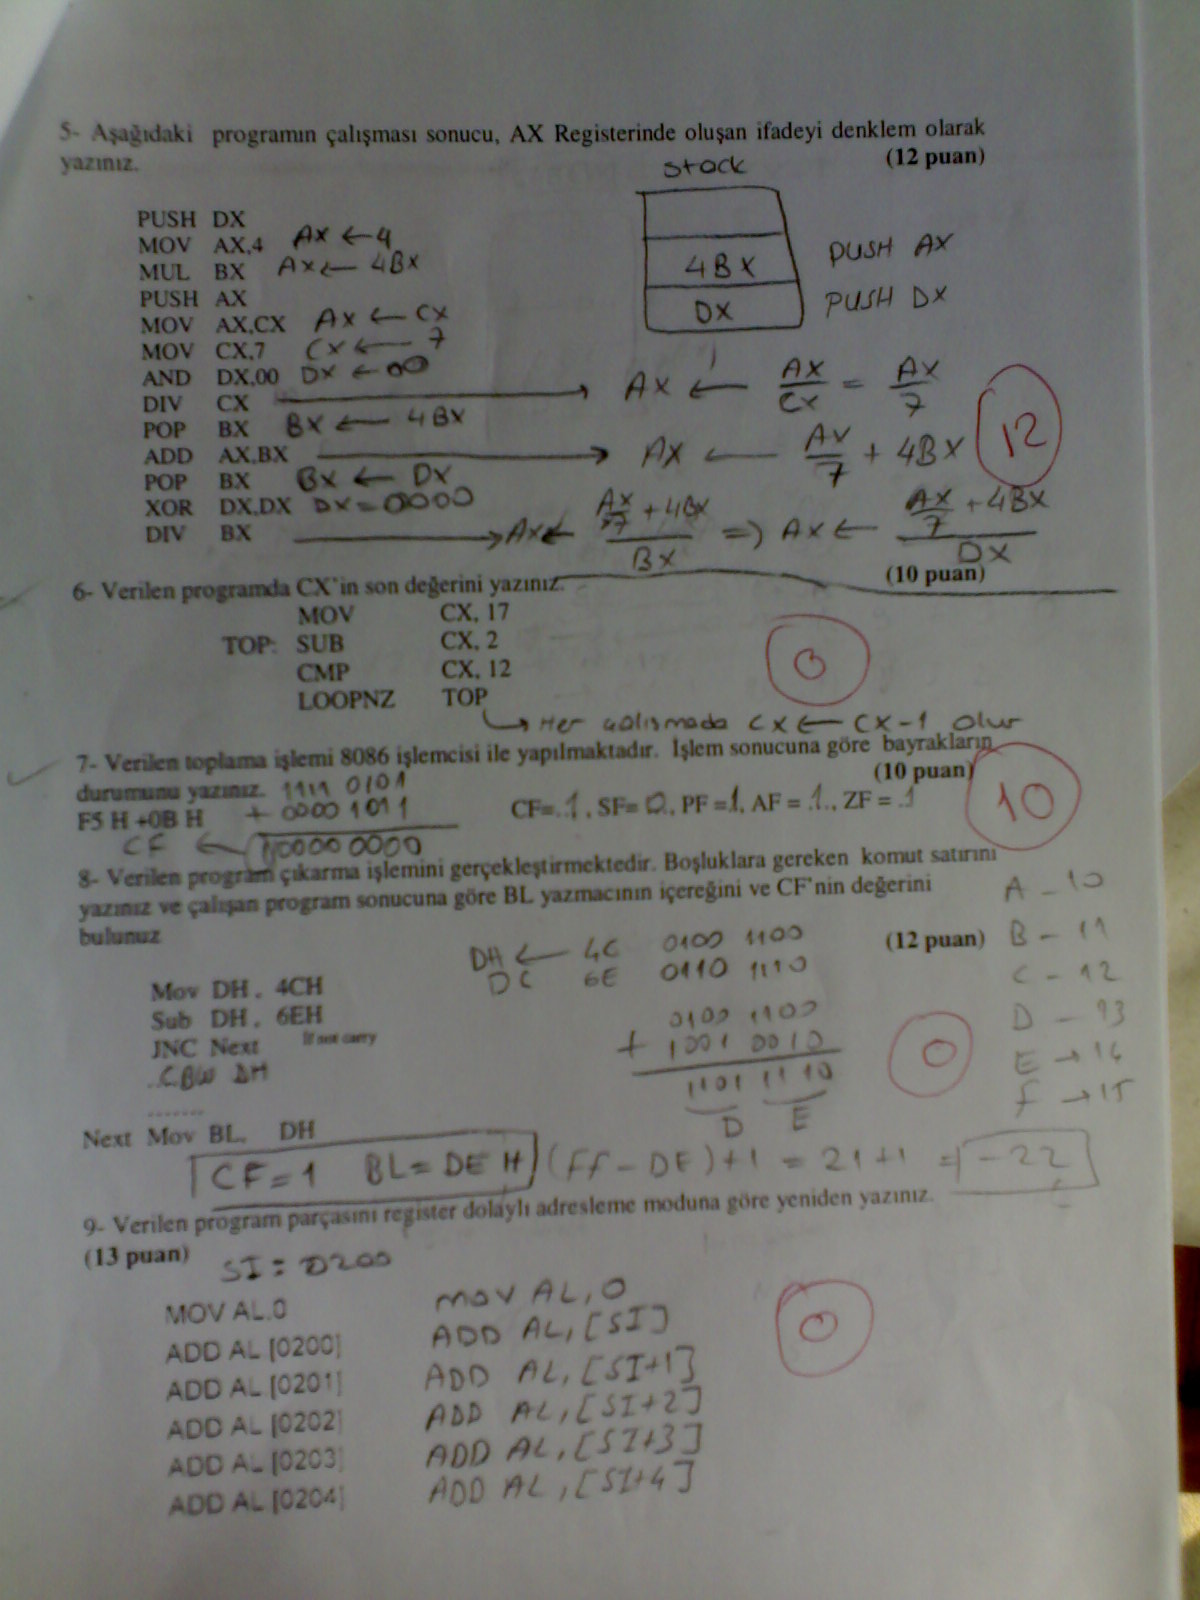 5- Aşağıdaki programın çalışması sonucu, AX Registerinde oluşan ifadeyi denklem olarak
yazınız. (12 puan)
Stack
PUSH DX
MOV AX,4 AX ← 4
MUL BX AX ← 4BX
PUSH AX
MOV AX,CX AX ← CX
MOV CX,7 CX ← 7
AND DX,00 DX ← 00
DIV CX → AX ← AX/CX = AX/7
POP BX BX ← 4BX
ADD AX,BX → AX ← AX/7 + 4BX
POP BX BX ← DX
XOR DX,DX DX = 0000
DIV BX → AX ← (AX/7 + 4BX)/BX => AX ← (AX/7 + 4BX)/DX
4BX PUSH AX
DX PUSH DX
12
6- Verilen programda CX'in son değerini yazınız. (10 puan)
MOV CX, 17
TOP: SUB CX, 2
CMP CX, 12
LOOPNZ TOP
→ Her çalışmada CX ← CX-1 olur
0
7- Verilen toplama işlemi 8086 işlemcisi ile yapılmaktadır. İşlem sonucuna göre bayrakların
durumunu yazınız. (10 puan)
1111 0101
F5 H +0B H + 0000 1011 CF=..1, SF= 0., PF =1, AF = .1.., ZF = .1
CF ← 10000 0000
10
8- Verilen program çıkarma işlemini gerçekleştirmektedir. Boşluklara gereken komut satırını
yazınız ve çalışan program sonucuna göre BL yazmacının içereğini ve CF'nin değerini
bulunuz (12 puan)
DH ← 4C 0100 1100
6E 0110 1110
Mov DH, 4CH
Sub DH, 6EH
JNC Next If not carry
..CBW DH
.......
Next Mov BL, DH
0100 1100
+ 1001 0010
1101 1110
D E
0
A - 10
B - 11
C - 12
D - 13
E → 14
F → 15
CF = 1 BL = DE H (FF - DE) + 1 = 21+1 = -22
9- Verilen program parçasını register dolaylı adresleme moduna göre yeniden yazınız.
(13 puan) SI = 0200
MOV AL.0 MOV AL, 0
ADD AL [0200] ADD AL, [SI]
ADD AL [0201] ADD AL, [SI+1]
ADD AL [0202] ADD AL, [SI+2]
ADD AL [0203] ADD AL, [SI+3]
ADD AL [0204] ADD AL, [SI+4]
0